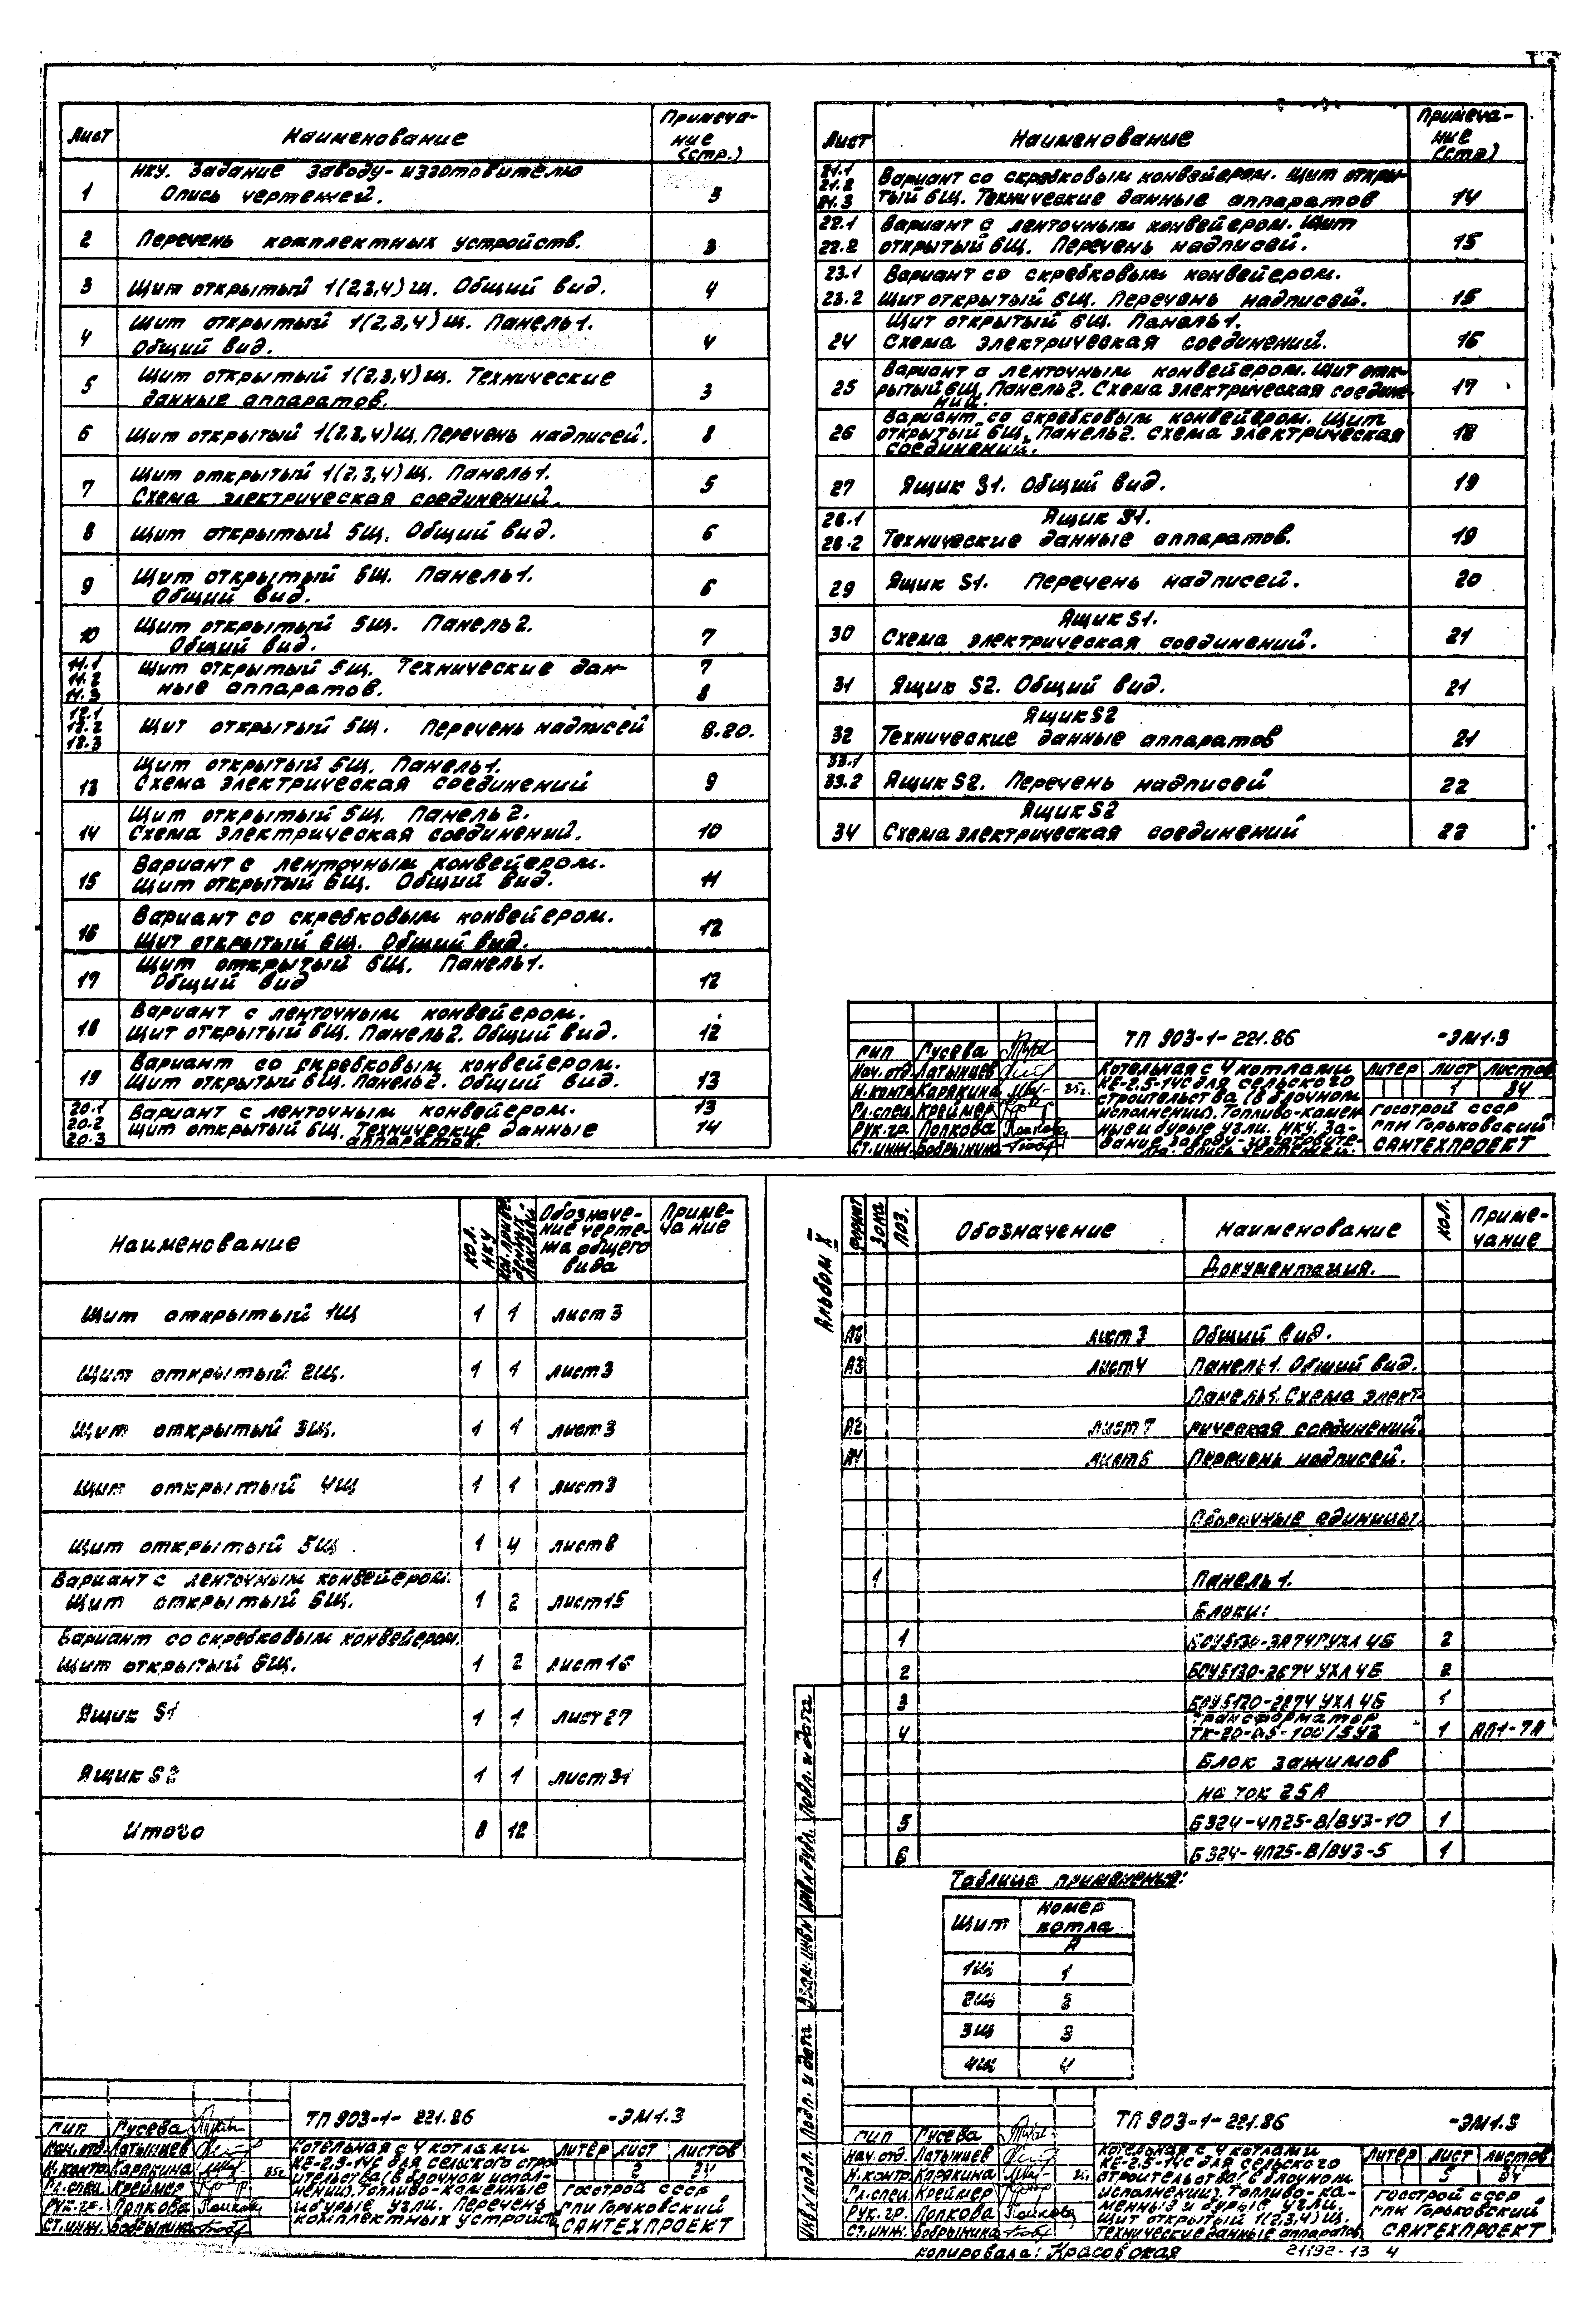 Лист Наименование Примеча-
ние
(стр.)
1 НКУ. Задание заводу-изготовителю
Опись чертежей. 3
2 Перечень комплектных устройств. 3
3 Щит открытый 1(2,3,4)щ. Общий вид. 4
4 Щит открытый 1(2,3,4)щ. Панель 1.
Общий вид. 4
5 Щит открытый 1(2,3,4)щ. Технические
данные аппаратов. 3
6 Щит открытый 1(2,3,4)щ. Перечень надписей. 8
7 Щит открытый 1(2,3,4)щ. Панель 1.
Схема электрическая соединений. 5
8 Щит открытый 5щ. Общий вид. 6
9 Щит открытый 5щ. Панель 1.
Общий вид. 6
10 Щит открытый 5щ. Панель 2.
Общий вид. 7
11.1 Щит открытый 5щ. Технические дан- 7
11.2
11.3 ные аппаратов. 8
12.1
12.2 Щит открытый 5щ. Перечень надписей 8.20.
12.3
13 Щит открытый 5щ. Панель 1.
Схема электрическая соединений 9
14 Щит открытый 5щ. Панель 2.
Схема электрическая соединений. 10
15 Вариант с ленточным конвейером.
Щит открытый 6щ. Общий вид. 11
16 Вариант со скребковым конвейером.
Щит открытый 6щ. Общий вид. 12
17 Щит открытый 6щ. Панель 1.
Общий вид 12
18 Вариант с ленточным конвейером.
Щит открытый 6щ. Панель 2. Общий вид. 12
19 Вариант со скребковым конвейером.
Щит открытый 6щ. Панель 2. Общий вид. 13
20.1 Вариант с ленточным конвейером. 13
20.2 Щит открытый 6щ. Технические данные 14
20.3 аппаратов.
Лист Наименование Примеча-
ние
(стр)
21.1
21.2 Вариант со скребковым конвейером. Щит откры-
21.3 тый 6щ. Технические данные аппаратов 14
22.1 Вариант с ленточным конвейером. Щит
22.2 открытый 6щ. Перечень надписей. 15
23.1 Вариант со скребковым конвейером.
23.2 Щит открытый 6щ. Перечень надписей. 15
24 Щит открытый 6щ. Панель 1.
Схема электрическая соединений. 16
25 Вариант с ленточным конвейером. Щит отк-
рытый 6щ. Панель 2. Схема электрическая соедине-
ний. 17
26 Вариант со скребковым конвейером. Щит
открытый 6щ. Панель 2. Схема электрическая
соединений. 18
27 Ящик S1. Общий вид. 19
28.1 Ящик S1.
28.2 Технические данные аппаратов. 19
29 Ящик S1. Перечень надписей. 20
30 Ящик S1.
Схема электрическая соединений. 21
31 Ящик S2. Общий вид. 21
32 Ящик S2
Технические данные аппаратов 21
33.1
33.2 Ящик S2. Перечень надписей 22
34 Ящик S2
Схема электрическая соединений 22
ТП 903-1-221.86 -ЭМ1.3
ГИП Гусева
Нач.отд. Латышев
Н.контр. Карякина 85г.
Гл.спец. Креймер
Рук.гр. Полкова
Ст.инж. Бобрынина
Котельная с 4 котлами
КЕ-2.5-14С для сельского
строительства (в блочном
исполнении). Топливо-камен-
ные и бурые угли. НКУ. За-
дание заводу-изготовите-
лю. Опись чертежей.
Литер Лист Листов
1 34
Госстрой СССР
ГПИ Горьковский
САНТЕХПРОЕКТ
Наименование Кол. НКУ Обозначе-
ние черте-
жа общего
вида Приме-
чание
Щит открытый 1щ 1 1 лист 3
Щит открытый 2щ. 1 1 лист 3
Щит открытый 3щ. 1 1 лист 3
Щит открытый 4щ 1 1 лист 3
Щит открытый 5щ. 1 4 лист 8
Вариант с ленточным конвейером.
Щит открытый 6щ. 1 2 лист 15
Вариант со скребковым конвейером.
Щит открытый 6щ. 1 2 лист 16
Ящик S1 1 1 лист 27
Ящик S2 1 1 лист 31
Итого 8 12
ТП 903-1-221.86 -ЭМ1.3
ГИП Гусева
Нач.отд. Латышев
Н.контр. Карякина 85г.
Гл.спец. Креймер
Рук.гр. Полкова
Ст.инж. Бобрынина
Котельная с 4 котлами
КЕ-2.5-14С для сельского стро-
ительства (в блочном испол-
нении). Топливо-каменные
и бурые угли. Перечень
комплектных устройств
Литер Лист Листов
2 34
Госстрой СССР
ГПИ Горьковский
САНТЕХПРОЕКТ
Альбом X
Формат Зона Поз. Обозначение Наименование Кол. Приме-
чание
Документация.
А3 лист 3 Общий вид.
А3 лист 4 Панель 1. Общий вид.
Панель 1. Схема элект-
А2 лист 7 рическая соединений.
А4 лист 6 Перечень надписей.
Сборочные единицы.
1 Панель 1.
Блоки:
1 БОУ5130-3А74ГУХЛ4Б 2
2 БОУ5130-2674 УХЛ4Б 2
3 БОУ5120-2874 УХЛ4Б 1
4 Трансформатор
ТК-20-0.5-100/5У3 1 АП1-ТА
Блок зажимов
на ток 25А
5 БЗ24-4П25-В/ВУ3-10 1
6 БЗ24-4П25-В/ВУ3-5 1
Таблица применения:
Щит Номер
котла
А
1щ 1
2щ 2
3щ 3
4щ 4
Инв.№подл. Подп. и дата Взам.инв.№ Инв.№дубл. Подп. и дата
ТП 903-1-221.86 -ЭМ1.3
ГИП Гусева
Нач.отд. Латышев
Н.контр. Карякина
Гл.спец. Креймер
Рук.гр. Полкова
Ст.инж. Бобрынина
Котельная с 4 котлами
КЕ-2.5-14С для сельского
строительства (в блочном
исполнении). Топливо-ка-
менные и бурые угли.
Щит открытый 1(2,3,4)щ.
Технические данные аппаратов
Литер Лист Листов
5 34
Госстрой СССР
ГПИ Горьковский
САНТЕХПРОЕКТ
Копировала: Красовская 21192-13 4